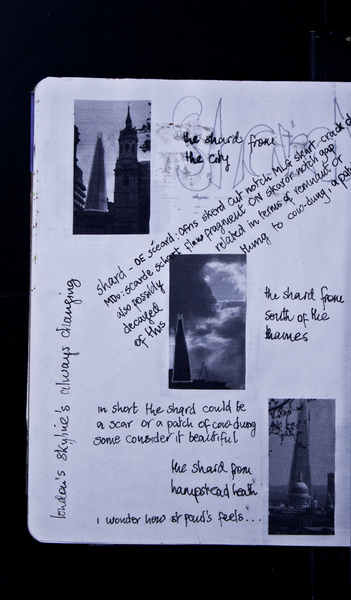 Shard
the shard from
the city
shard - OE sceard: OFris skerd cut notch MLG skart crack
MDu: scarde schart flaw fragment ON skarðr notch gap
also possibly related in terms of remnant or
decayed thing to cow-dung. a patch
of this
london's skyline's always changing
the shard from
south of the
thames
in short the shard could be
a scar or a patch of cow-dung
some consider it beautiful
the shard from
hampstead heath
i wonder how st paul's feels...